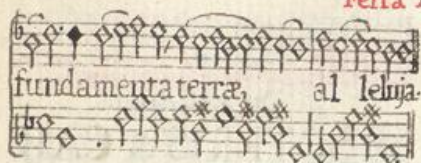 fundamenta terræ, al leluja.